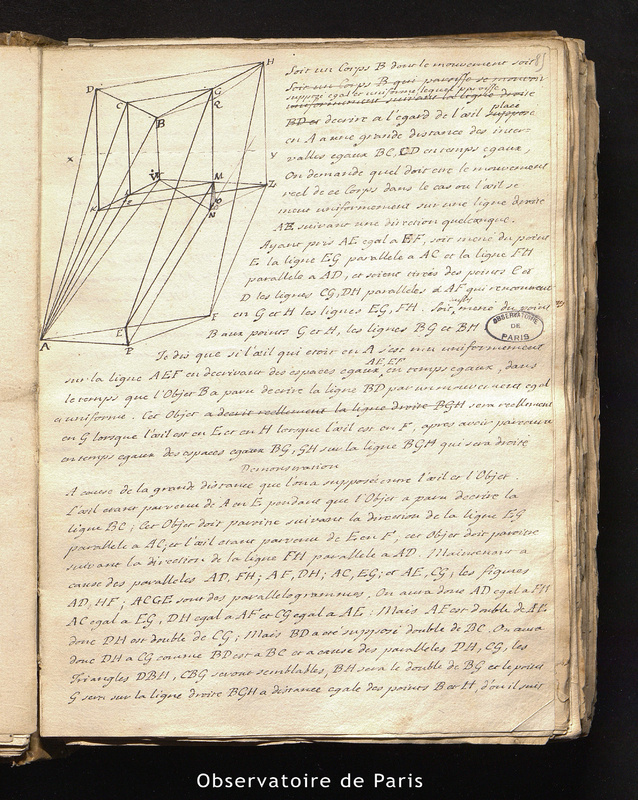 85
Soit un Corps B dont le mouvement soit
Soit un Corps B qui paroisse se mouvoir
supposé egal et uniforme lequel paroisse
uniformement suivant la ligne droite
place
BD et decrire a l'egard de l'œil supposé
en A a une grande distance des inter-
valles egaux BC, CD en temps egaux,
On demande quel doit etre le mouvement
reel de ce Corps dans le cas ou l'œil se
meut uniformement sur une ligne droite
AE suivant une direction quelconque.
Ayant pris AE egal a EF, soit mené du point
E la ligne EG parallele a AC et la ligne FH
parallele a AD, et soient tirées des points C et
D les lignes CG, DH paralleles a AF qui rencontrent
en G et H les lignes EG, FH. Soit aussi mené du point
B aux points G et H, les lignes BG et BH
OBSERVATOIRE DE PARIS
Je dis que si l'œil qui etoit en A s'est mu uniformement
sur la ligne AEF en decrivant des espaces egaux AE, EF en temps egaux, dans
le temps que l'Objet B a paru decrire la ligne BD par un mouvement egal
et uniforme. Cet Objet a decrit reellement la ligne droite BGH sera reellement
en G lorsque l'œil est en E et en H lorsque l'œil est en F, apres avoir parcouru
en temps egaux des espaces egaux BG, GH sur la ligne BGH qui sera droite
Demonstration
A cause de la grande distance que l'on a supposée entre l'œil et l'Objet.
L'œil etant parvenu de A en E pendant que l'Objet a paru decrire la
ligne BC; Cet Objet doit paroitre suivant la direction de la ligne EG
parallele a AC, et l'œil etant parvenu de E en F, cet Objet doit paroitre
suivant la direction de la ligne FH parallele a AD. Maintenant a
cause des paralleles AD, FH; AF, DH; AC, EG; et AE, CG, les figures
AD, HF; ACGE sont des parallelogrammes, On aura donc AD egal a FH
AC egal a EG, DH egal a AF et CG egal a AE: Mais AF est double de AE
donc DH est double de CG; Mais BD a eté supposé double de BC. On aura
donc DH a CG comme BD est a BC et a cause des paralleles DH, CG, les
Triangles DBH, CBG seront semblables, BH sera le double de BG et le point
G sera sur la ligne droite BGH a distance egale des points B et H, d'où il suit
D
C
B
G
R
H
x
y
K
M
N
L
A
E
P
F
Observatoire de Paris